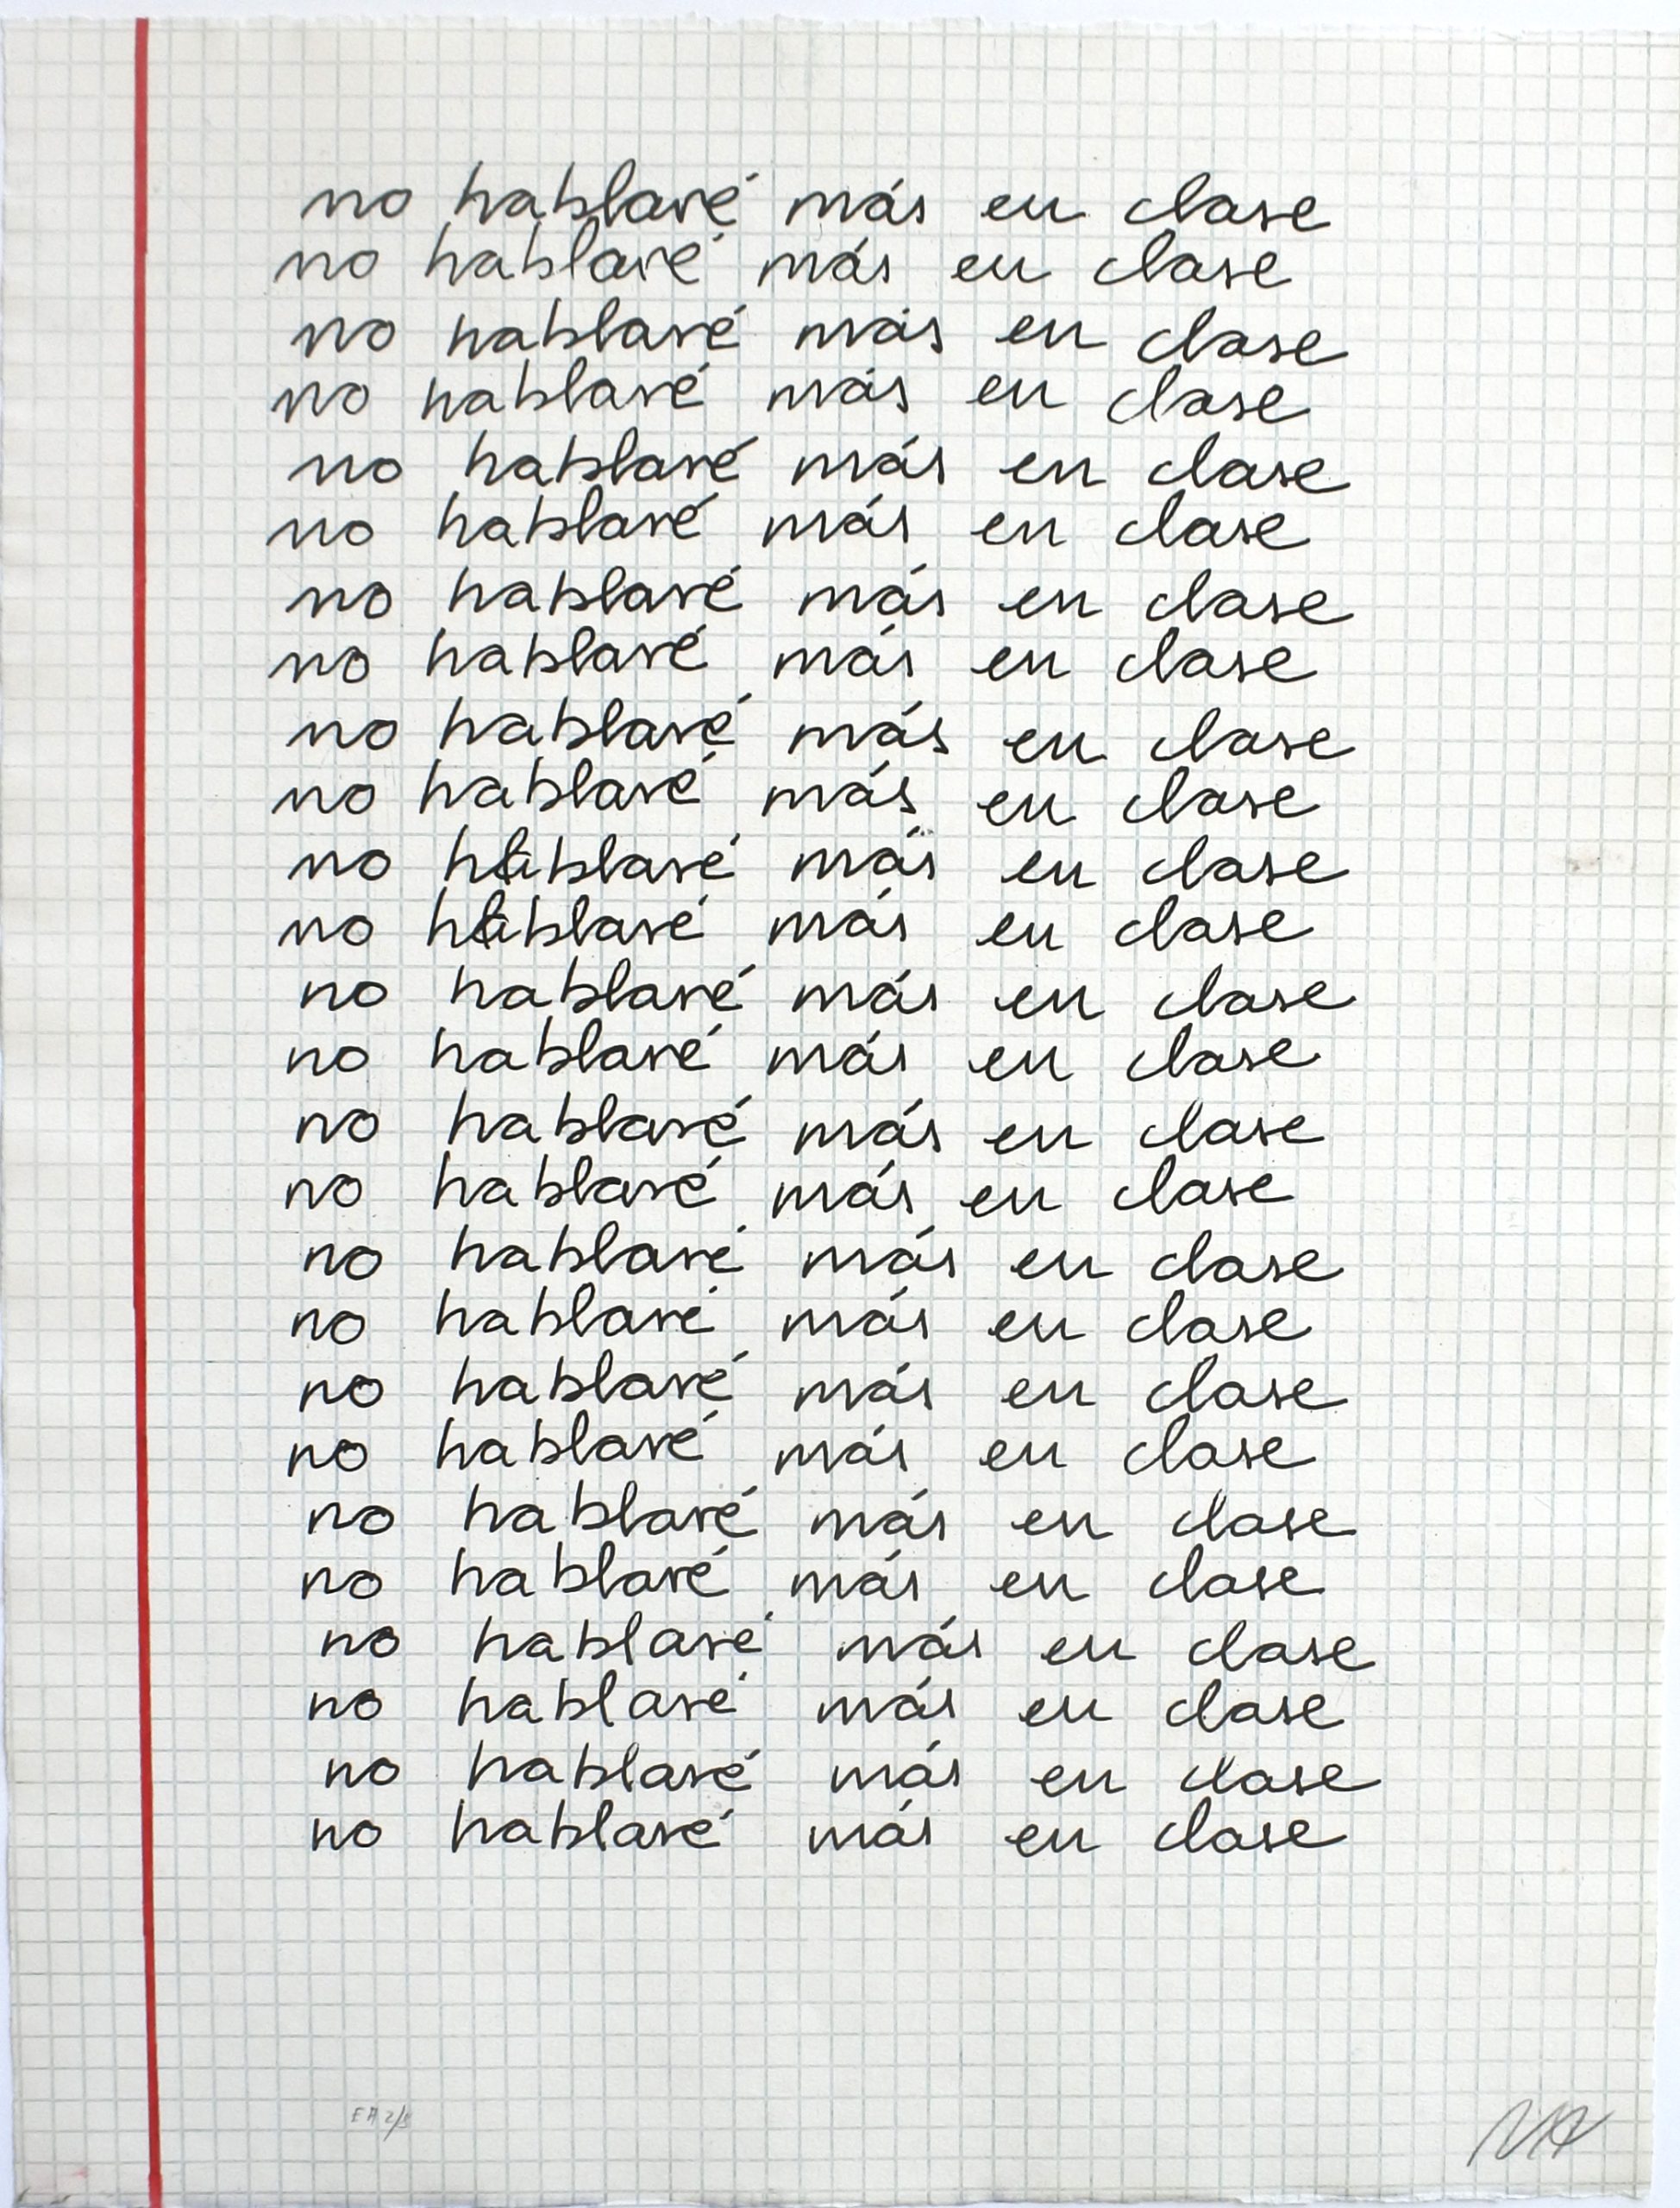 no hablaré más en clase
no hablaré más en clase
no hablaré más en clase
no hablaré más en clase
no hablaré más en clase
no hablaré más en clase
no hablaré más en clase
no hablaré más en clase
no hablaré más en clase
no hablaré más en clase
no hablaré más en clase
no hablaré más en clase
no hablaré más en clase
no hablaré más en clase
no hablaré más en clase
no hablaré más en clase
no hablaré más en clase
no hablaré más en clase
no hablaré más en clase
no hablaré más en clase
no hablaré más en clase
no hablaré más en clase
no hablaré más en clase
no hablaré más en clase
no hablaré más en clase
no hablaré más en clase
EA